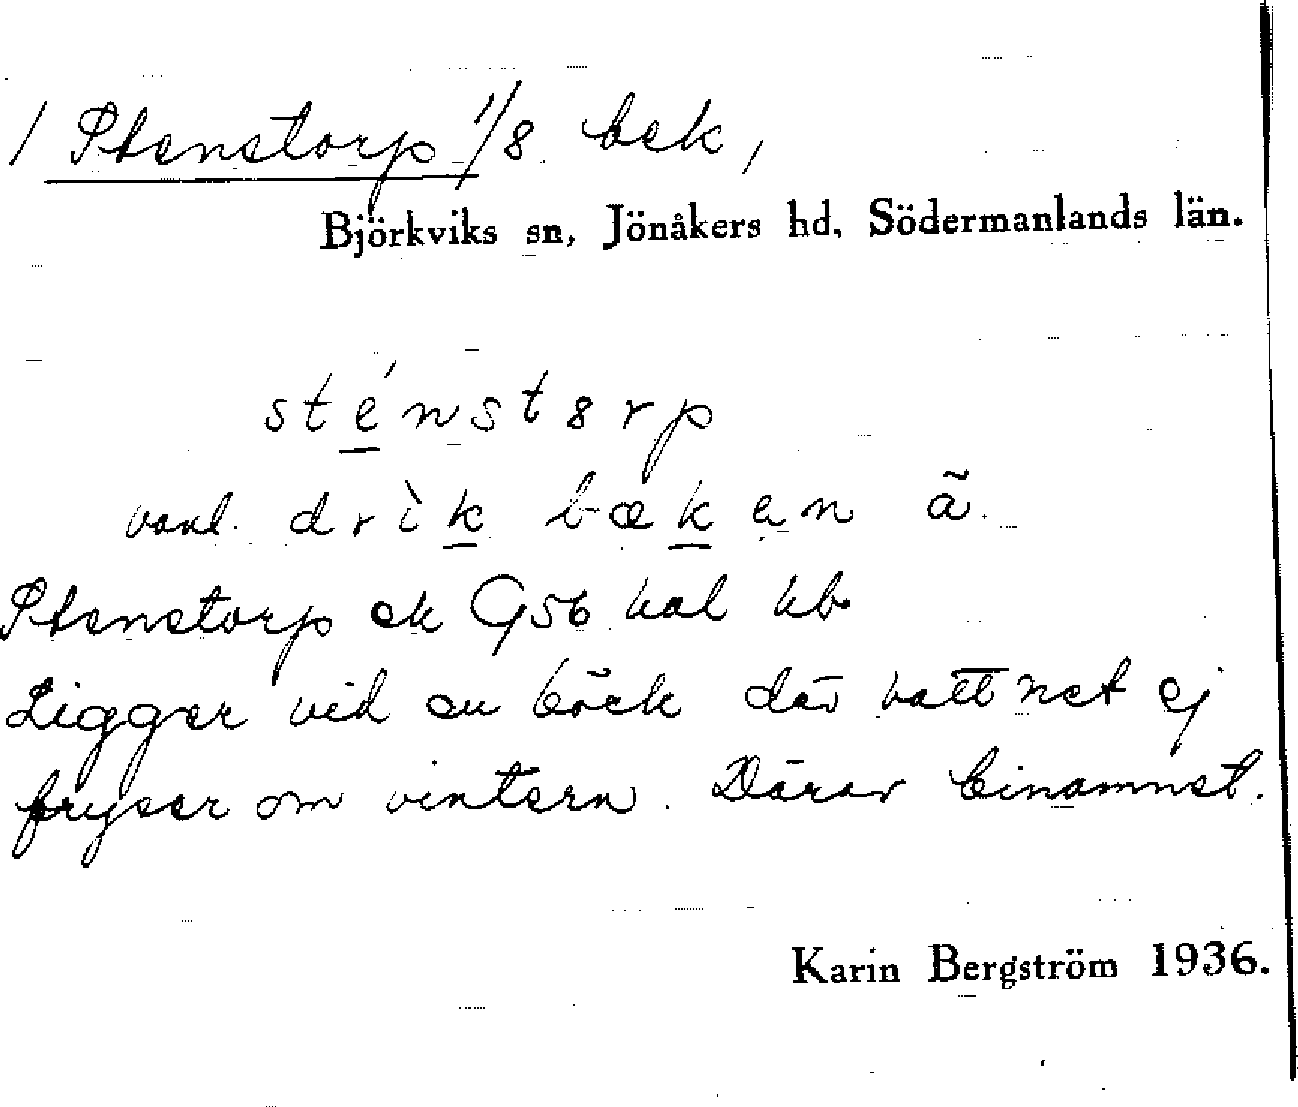 / Stenstorp 1/8 bek,
Björkviks sn, Jönåkers hd, Södermanlands län.
sténst8rp
vanl. drìk bæken ã.
Stenstorp ek G56 kal kb
Ligger vid en bäck där vattnet ej
fryser om vintern. Därav binamnet.
Karin Bergström 1936.